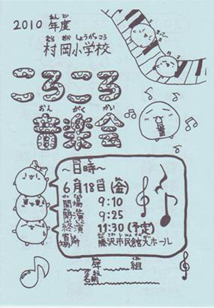 2010年度
村岡小学校
ころころ
音楽会
おんがくかい
～日時～
6月18日(金)
開場 9:10
開演 9:25
終演 11:30(予定)
場所 藤沢市民館大ホール
年 組
名前